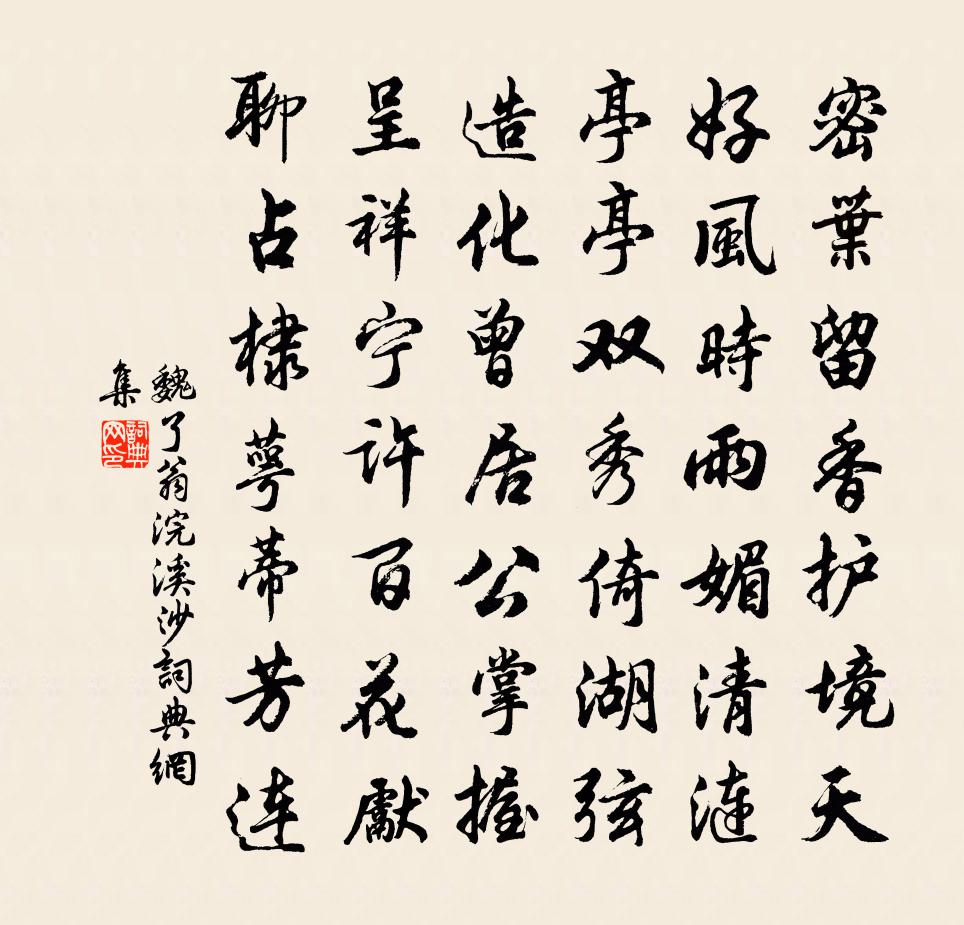 密葉留香护境天
好風時雨媚清漣
亭亭双秀倚湖弦
造化曾居公掌握
呈祥宁許百花獻
聊占棣萼蒂芳连
魏了翁浣溪沙詞典網
集
詞典网印